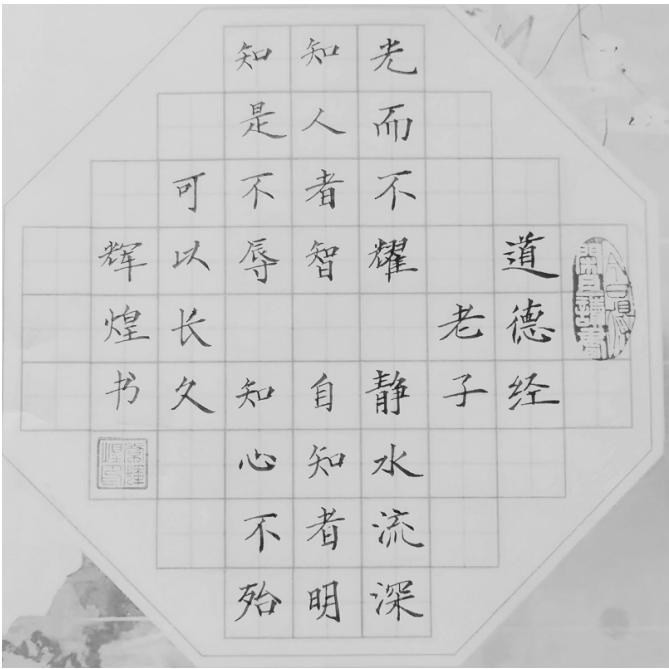 道德经
老子
光而不耀 静水流深
知人者智 自知者明
知是不辱 知心不殆
可以长久
辉煌书